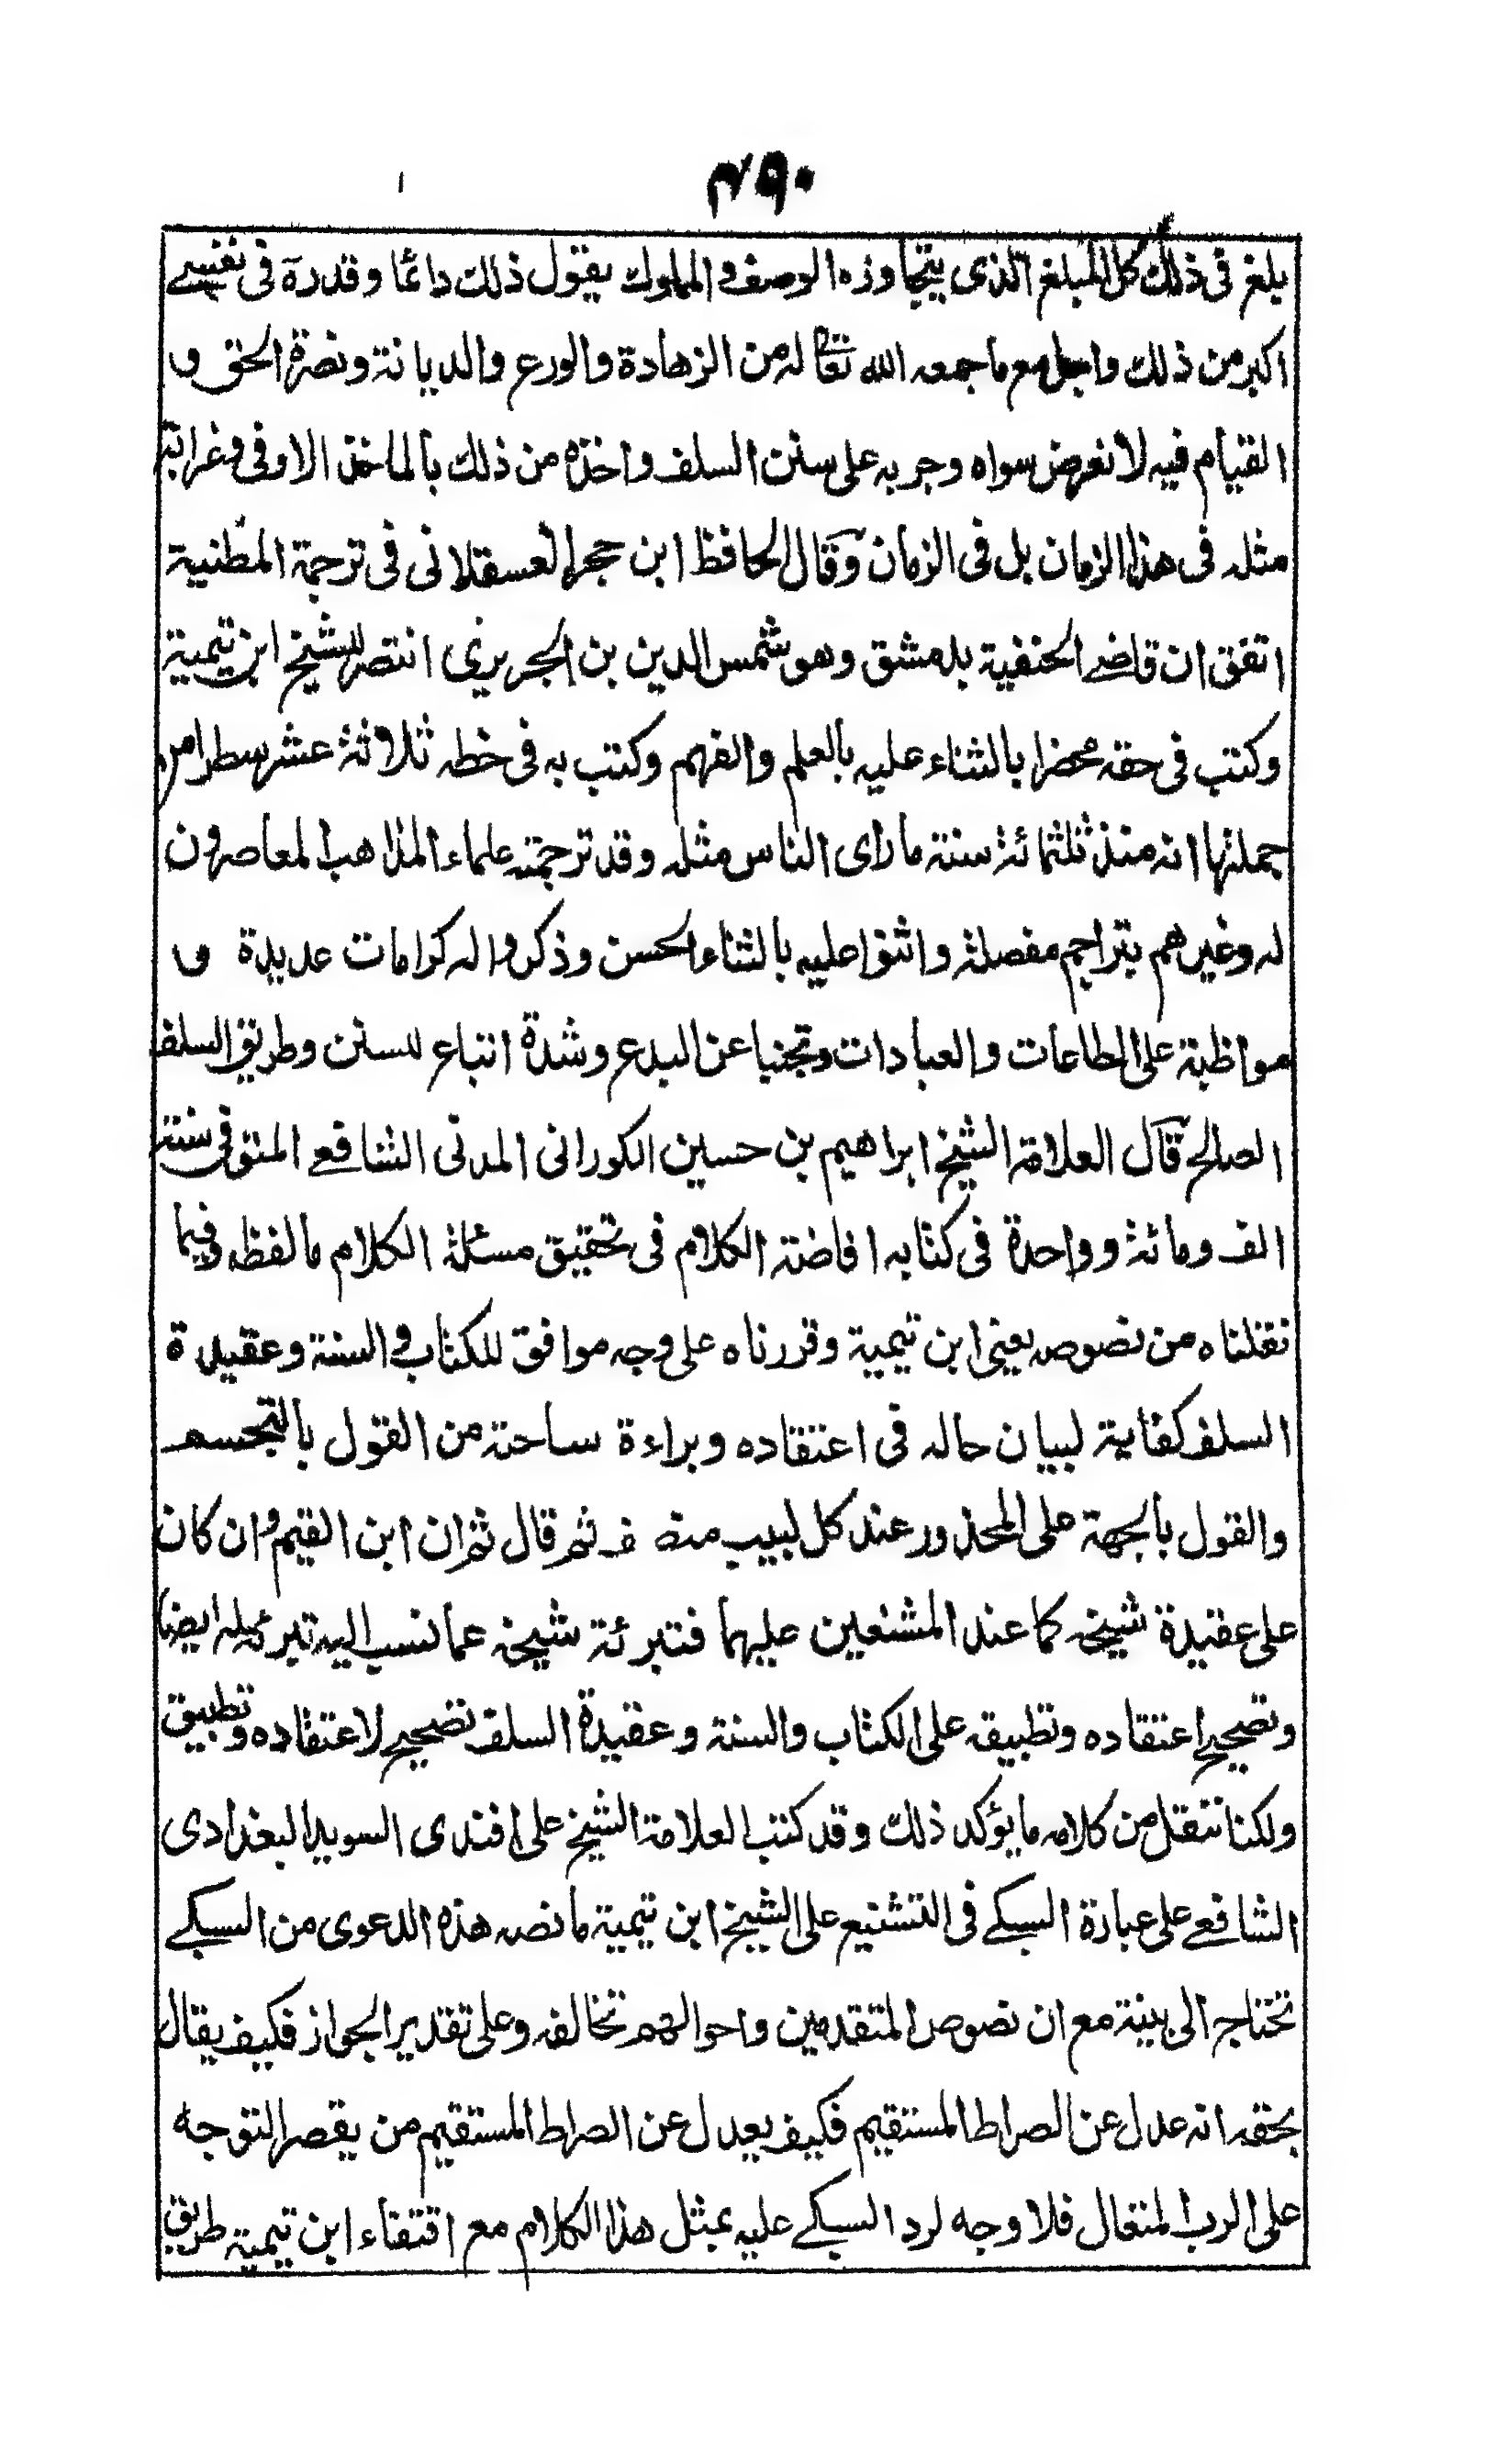 ٤٩٠
بلغ فى ذلك كل المبلغ الذى يتجاوزه الوصف والمملوك يقول ذلك دائما وقدره فى نفسے
اكبر من ذلك واجل مع ما جمعه الله تعالى له من الزهادة والورع والديانة ونصرة الحق و
القيام فيه لا لغرض سواه وجريه على سنن السلف واخذه من ذلك بالماخذ الاوفى وغرابة
مثله فى هذا الزمان بل فى الزمان وقال الحافظ ابن حجر العسقلانى فى ترجمة المطنية
اتفق ان قاضے الحنفية بدمشق وهو شمس الدين بن الجريرى انتصر للشيخ ابن تيمية
وكتب فى حقه محضرا بالثناء عليه بالعلم والفهم وكتب به فى خطه ثلاثة عشر سطرا من
جملتها انه منذ ثلثمائة سنة ما راى الناس مثله وقد ترجمته علماء المذاهب المعاصرون
له وغيرهم بتراجم مفصلة واثنوا عليه بالثناء الحسن وذكروا له كرامات عديدة و
مواظبة على الطاعات والعبادات وتجنبا عن البدع وشدة اتباع للسنن وطريق السلف
الصالح قال العلامة الشيخ ابراهيم بن حسين الكورانى المدنى الشافعے المتوفى سنة
الف ومائة وواحدة فى كتابه افاضة الكلام فى تحقيق مسئلة الكلام ما لفظه وفيما
نقلناه من نصوصه يعنى ابن تيمية وقررناه على وجه موافق للكتاب والسنة وعقيدة
السلف كفاية لبيان حاله فى اعتقاده وبراءة ساحته من القول بالتجسم
والقول بالجهة على المحذور عند كل لبيب منصف ثم قال ثم ان ابن القيم وان كان
على عقيدة شيخه كما عند المشنعين عليهما فتبرئة شيخه عما نسب اليه تبرئة له ايضا
وتصحيح اعتقاده وتطبيقه على الكتاب والسنة وعقيدة السلف تصحيح لاعتقاده وتطبيق
ولكنا ننقل من كلامه ما يؤكد ذلك وقد كتب العلامة الشيخ على افندى السويدا البغدادى
الشافعے على عبارة السبكے فى التشنيع على الشيخ ابن تيمية ما نصه هذه الدعوى من السبكے
تحتاج الى بينة مع ان نصوص المتقدمين واحوالهم تخالفه وعلى تقدير الجواز فكيف يقال
بحقه انه عدل عن الصراط المستقيم فكيف يعدل عن الصراط المستقيم من يقصر التوجه
على الرب المتعال فلا وجه لرد السبكے عليه بمثل هذا الكلام مع اقتفاء ابن تيمية طريق